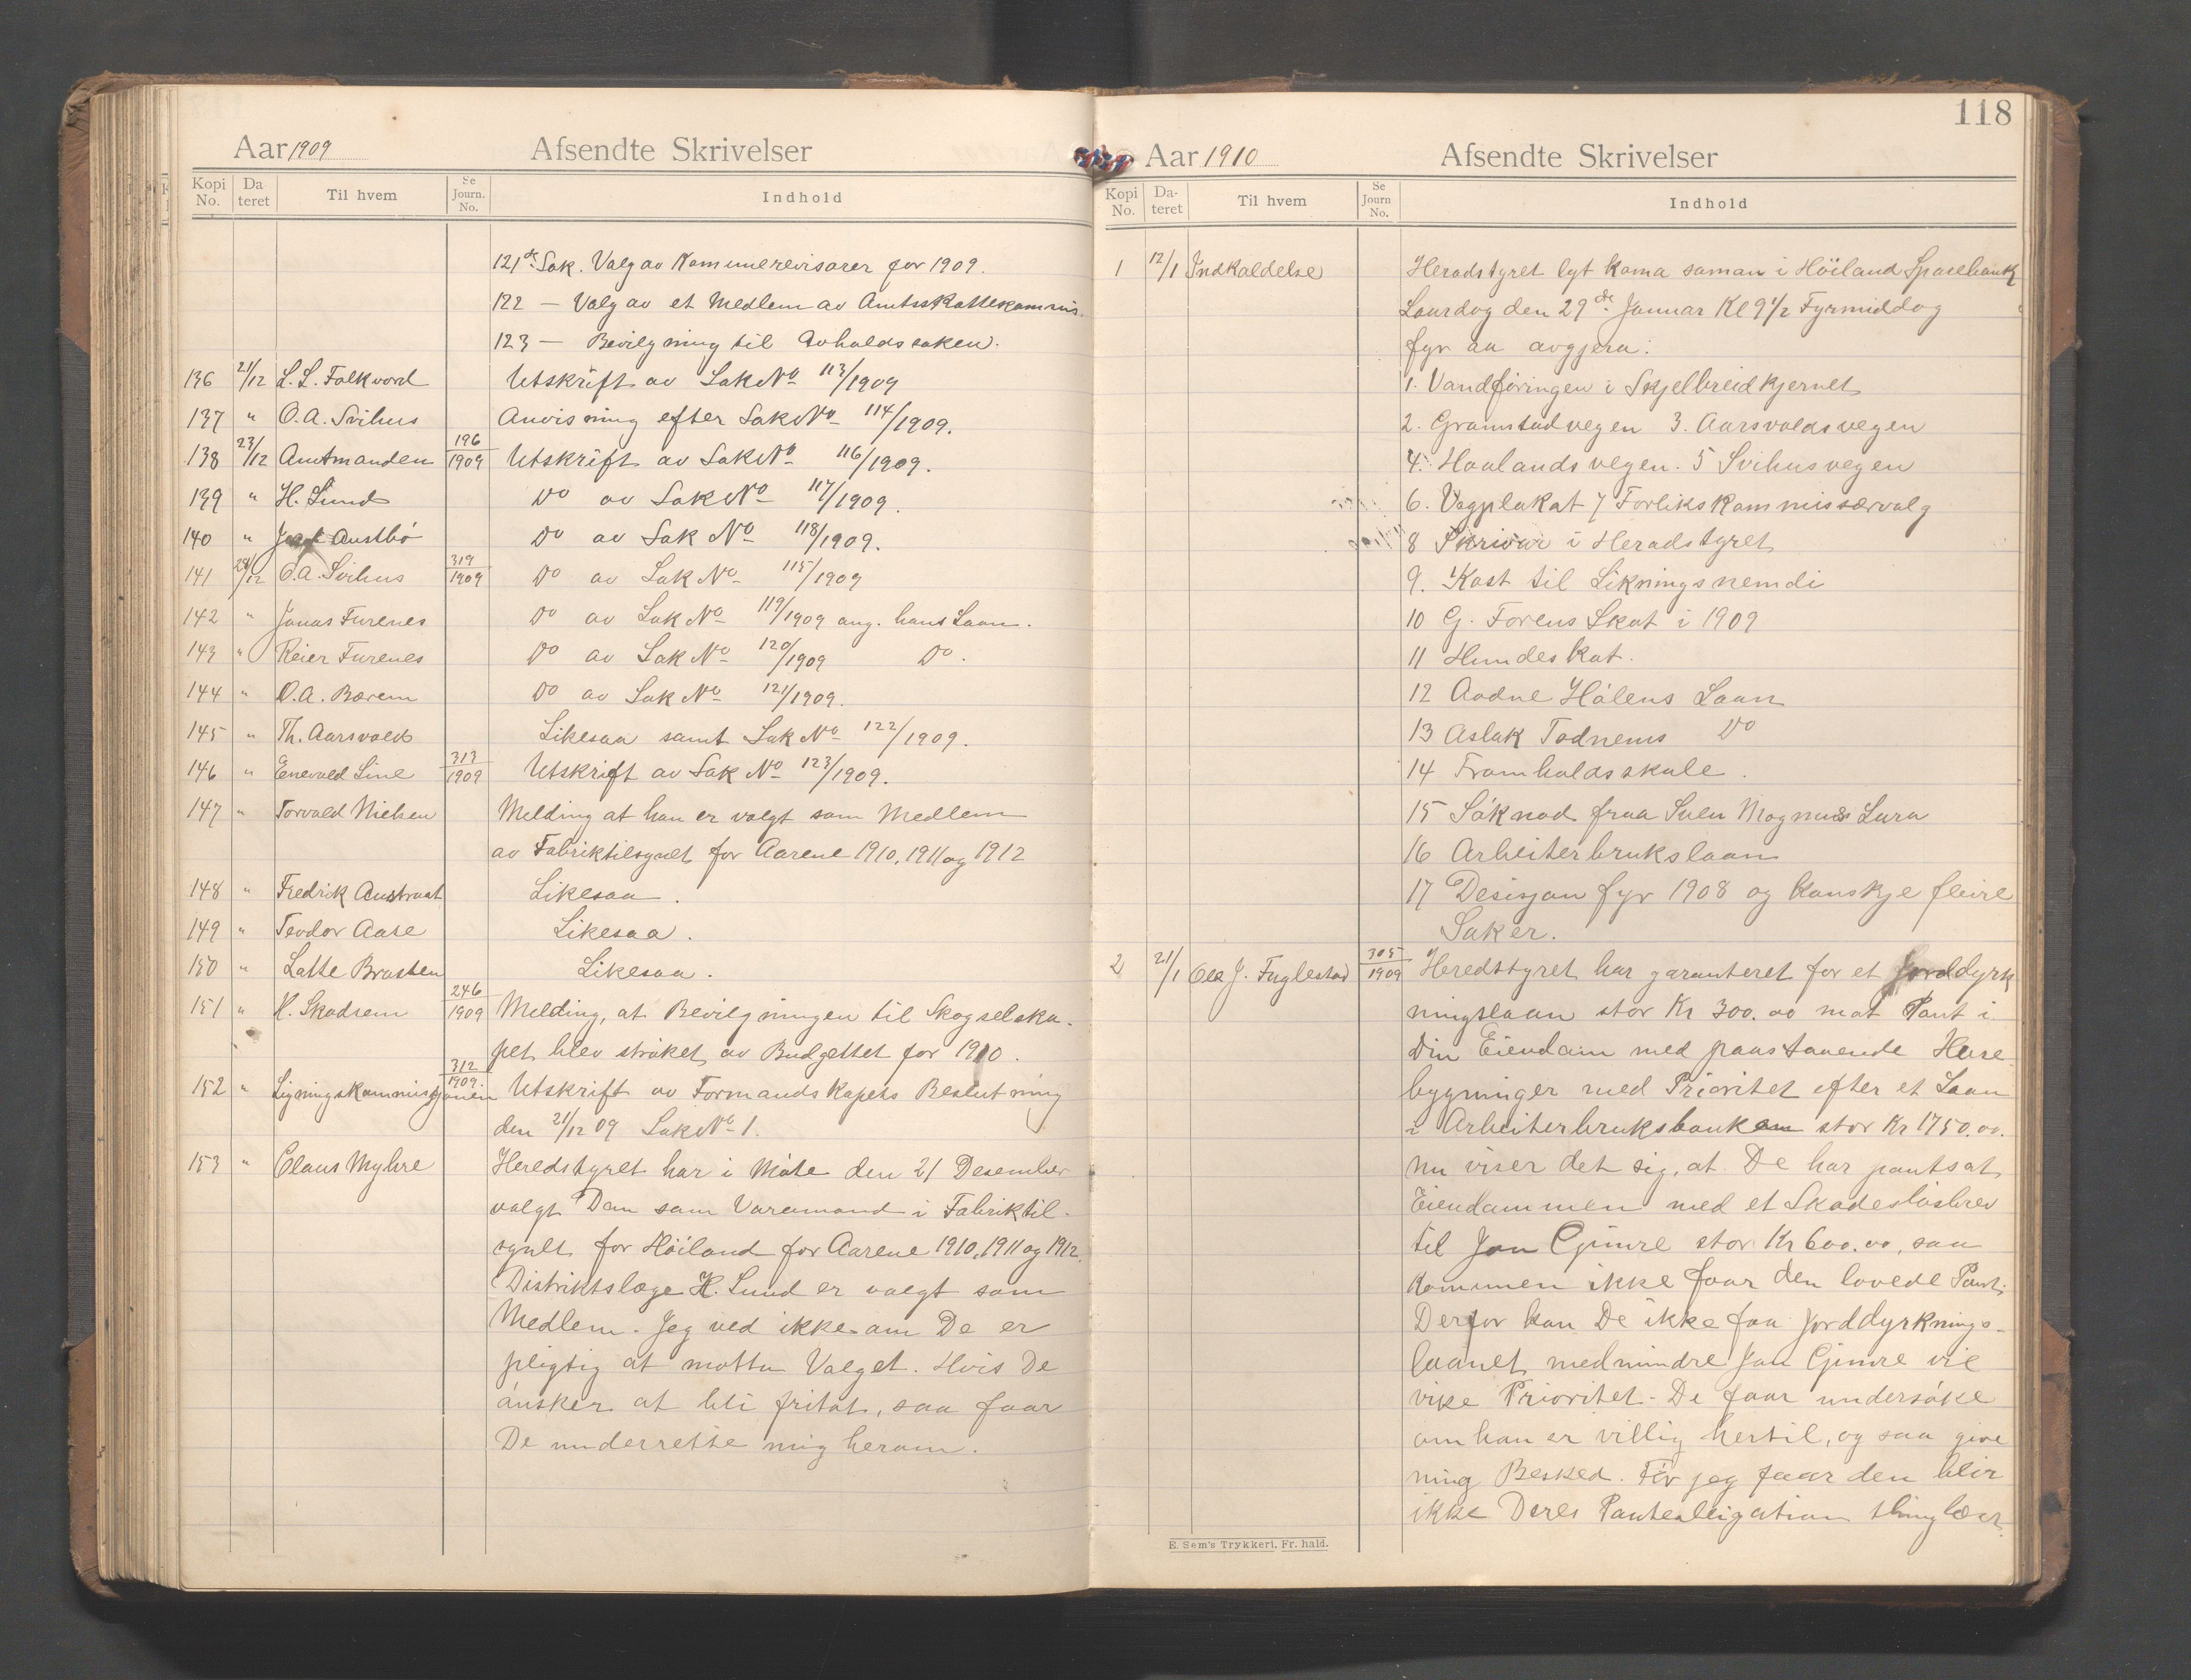 Aar 1909 Afsendte Skrivelser
Kopi No. Da teret Til hvem Se Journ. No. Indhold
121de Sak. Valg av Kommunerevisorer for 1909.
122 — Valg av et Medlem av Amtsskattekommis.
123 — Bevilgning til Avholdssaken.
136 21/12 L. L. Folkvord Utskrift av Sak No 113/1909
137 " O. A. Svihus Anvisning efter Sak No 114/1909.
138 23/12 Amtmanden 196/1909 Utskrift av Sak No 116/1909.
139 " H. Lund Do av Sak No 117/1909.
140 " Austbö Do av Sak No 118/1909.
141 29/12 O. A. Svihus 319/1909 Do av Sak No 115/1909
142 " Jonas Furenes Do av Sak No 119/1909 ang. hans Laan.
143 " Reier Furenes Do av Sak No 120/1909 Do.
144 " O. A. Bærem Do av Sak No 121/1909.
145 " Th. Aarsvold Likesaa samt Sak No 122/1909.
146 " Enevald Line 313/1909 Utskrift av Sak No 123/1909.
147 " Torvald Nielsen Melding at han er valgt som Medlem
av Fabriktilsynet for Aarene 1910, 1911 og 1912
148 " Fredrik Austraat Likesaa.
149 " Teodor Aase Likesaa.
150 " Latte Braaten Likesaa.
151 " K. Skadsem 246/1909 Melding, at Bevilgningen til Skogselska-
pet blev ströket av Budgettet for 1910.
152 " Ligningskommissjonen 312/1909. Utskrift av Formandskapets Beslutning
den 21/12 09 Sak No 1.
153 " Claus Myhre Heredstyret har i Möte den 21 Desember
valgt Dem som Varamand i Fabriktil-
synet for Höiland for Aarene 1910, 1911 og 1912.
Distriktslæge H. Lund er valgt som
Medlem. Jeg ved ikke om De er
pligtig at motta Valget. Hvis De
önsker at bli fritat, saa faar
De underrette mig herom.
118
Aar 1910 Afsendte Skrivelser
Kopi No. Da- teret Til hvem Se Journ No. Indhold
1 12/1 Indkaldelse Heradstyret lyt koma saman i Höiland Sparebank
Laurdag den 29de Januar Kl 9 1/2 Fyrmiddag
fyr aa avgjera:
1. Vandföringen i Skjelbreidtjernet
2. Gramstadvegen 3. Aarsvoldsvegen
4. Hoalandsvegen. 5 Svihusvegen
6. Vegplakat 7 Forlikskommissærvalg
8 Skrivar i Heradstyret
9. Kost til Likningsnemdi
10 G. Forens Skat i 1909
11 Hundeskat.
12 Aadne Hölens Laan
13 Aslak Todnems Do
14 Framhaldsskule.
15 Söknad fraa Sven Magnus Lura
16 Arbeiterbrukslaan
17 Desisjon fyr 1908 og kanskje fleire
Saker.
2 21/1 Ole J. Fuglestad 305/1909 Heredstyret har garanteret for et Jorddyrk
ningslaan stor Kr 300.00 mot Pant i
Din Eiendom med paastaaende Huse
bygninger med Prioritet efter et Laan
i Arbeiterbruksbanken stor Kr 1750.00.
Nu viser det sig, at De har pantsat
Eiendommen med et Skadeslösbrev
til Jon Gjimre stor Kr 600.00, saa
Kommunen ikke faar den lovede Pant.
Derfor kan De ikke faa Jorddyrknings-
laanet medmindre Jon Gjimre vil
vike Prioritet. De faar undersöke
om han er villig hertil, og saa give
mig Besked. För jeg faar den blir
ikke Deres Panteobligation thinglæst.
E. Sem's Trykkeri, Fr. hald.